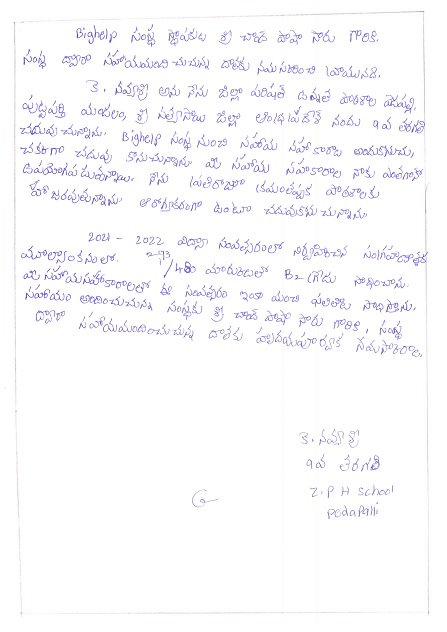 Bighelp సంస్థ స్థాపకులు శ్రీ చాంద్ పాషా సారు గారికి.
సంస్థ ద్వారా సహాయమందించుచున్న దాతకు నమస్కరించి వ్రాయునది.
కె. నవ్యశ్రీ అను నేను జిల్లా పరిషత్ ఉన్నత పాఠశాల పెడపల్లి,
పుట్టపర్తి మండలం, శ్రీ సత్యసాయి జిల్లా ఆంధ్రప్రదేశ్ నందు 9వ తరగతి
చదువుచున్నాను. Bighelp సంస్థ నుంచి సహాయ సహకారాలు అందుకొనుచు,
చక్కగా చదువు కొనుచున్నాను మీ సహాయ సహకారాలు నాకు ఎంతగానో
ఉపయోగపడుతున్నాయి. నేను ప్రతిరోజూ క్రమం తప్పక పాఠశాలకు
హాజరవుతున్నాను ఆరోగ్యకరంగా ఉంటూ చదువుకొనుచున్నాను
2021 - 2022 విద్యా సంవత్సరంలో నిర్వహించిన సంగ్రహణాత్మక
మూల్యాంకనంలో. /480 మార్కులతో B2 గ్రేడు సాధించాను.
మీ సహాయసహకారాలతో ఈ సంవత్సరం ఇంకా మంచి ఫలితాలు సాధిస్తాను.
సహాయం అందించుచున్న సంస్థకు శ్రీ చాంద్ పాషా సారు గారికి, సంస్థ
ద్వారా సహాయమందించుచున్న దాతకు హృదయపూర్వక నమస్కారాలు.
కె. నవ్యశ్రీ
9వ తరగతి
Z.P.H School
pedapalli